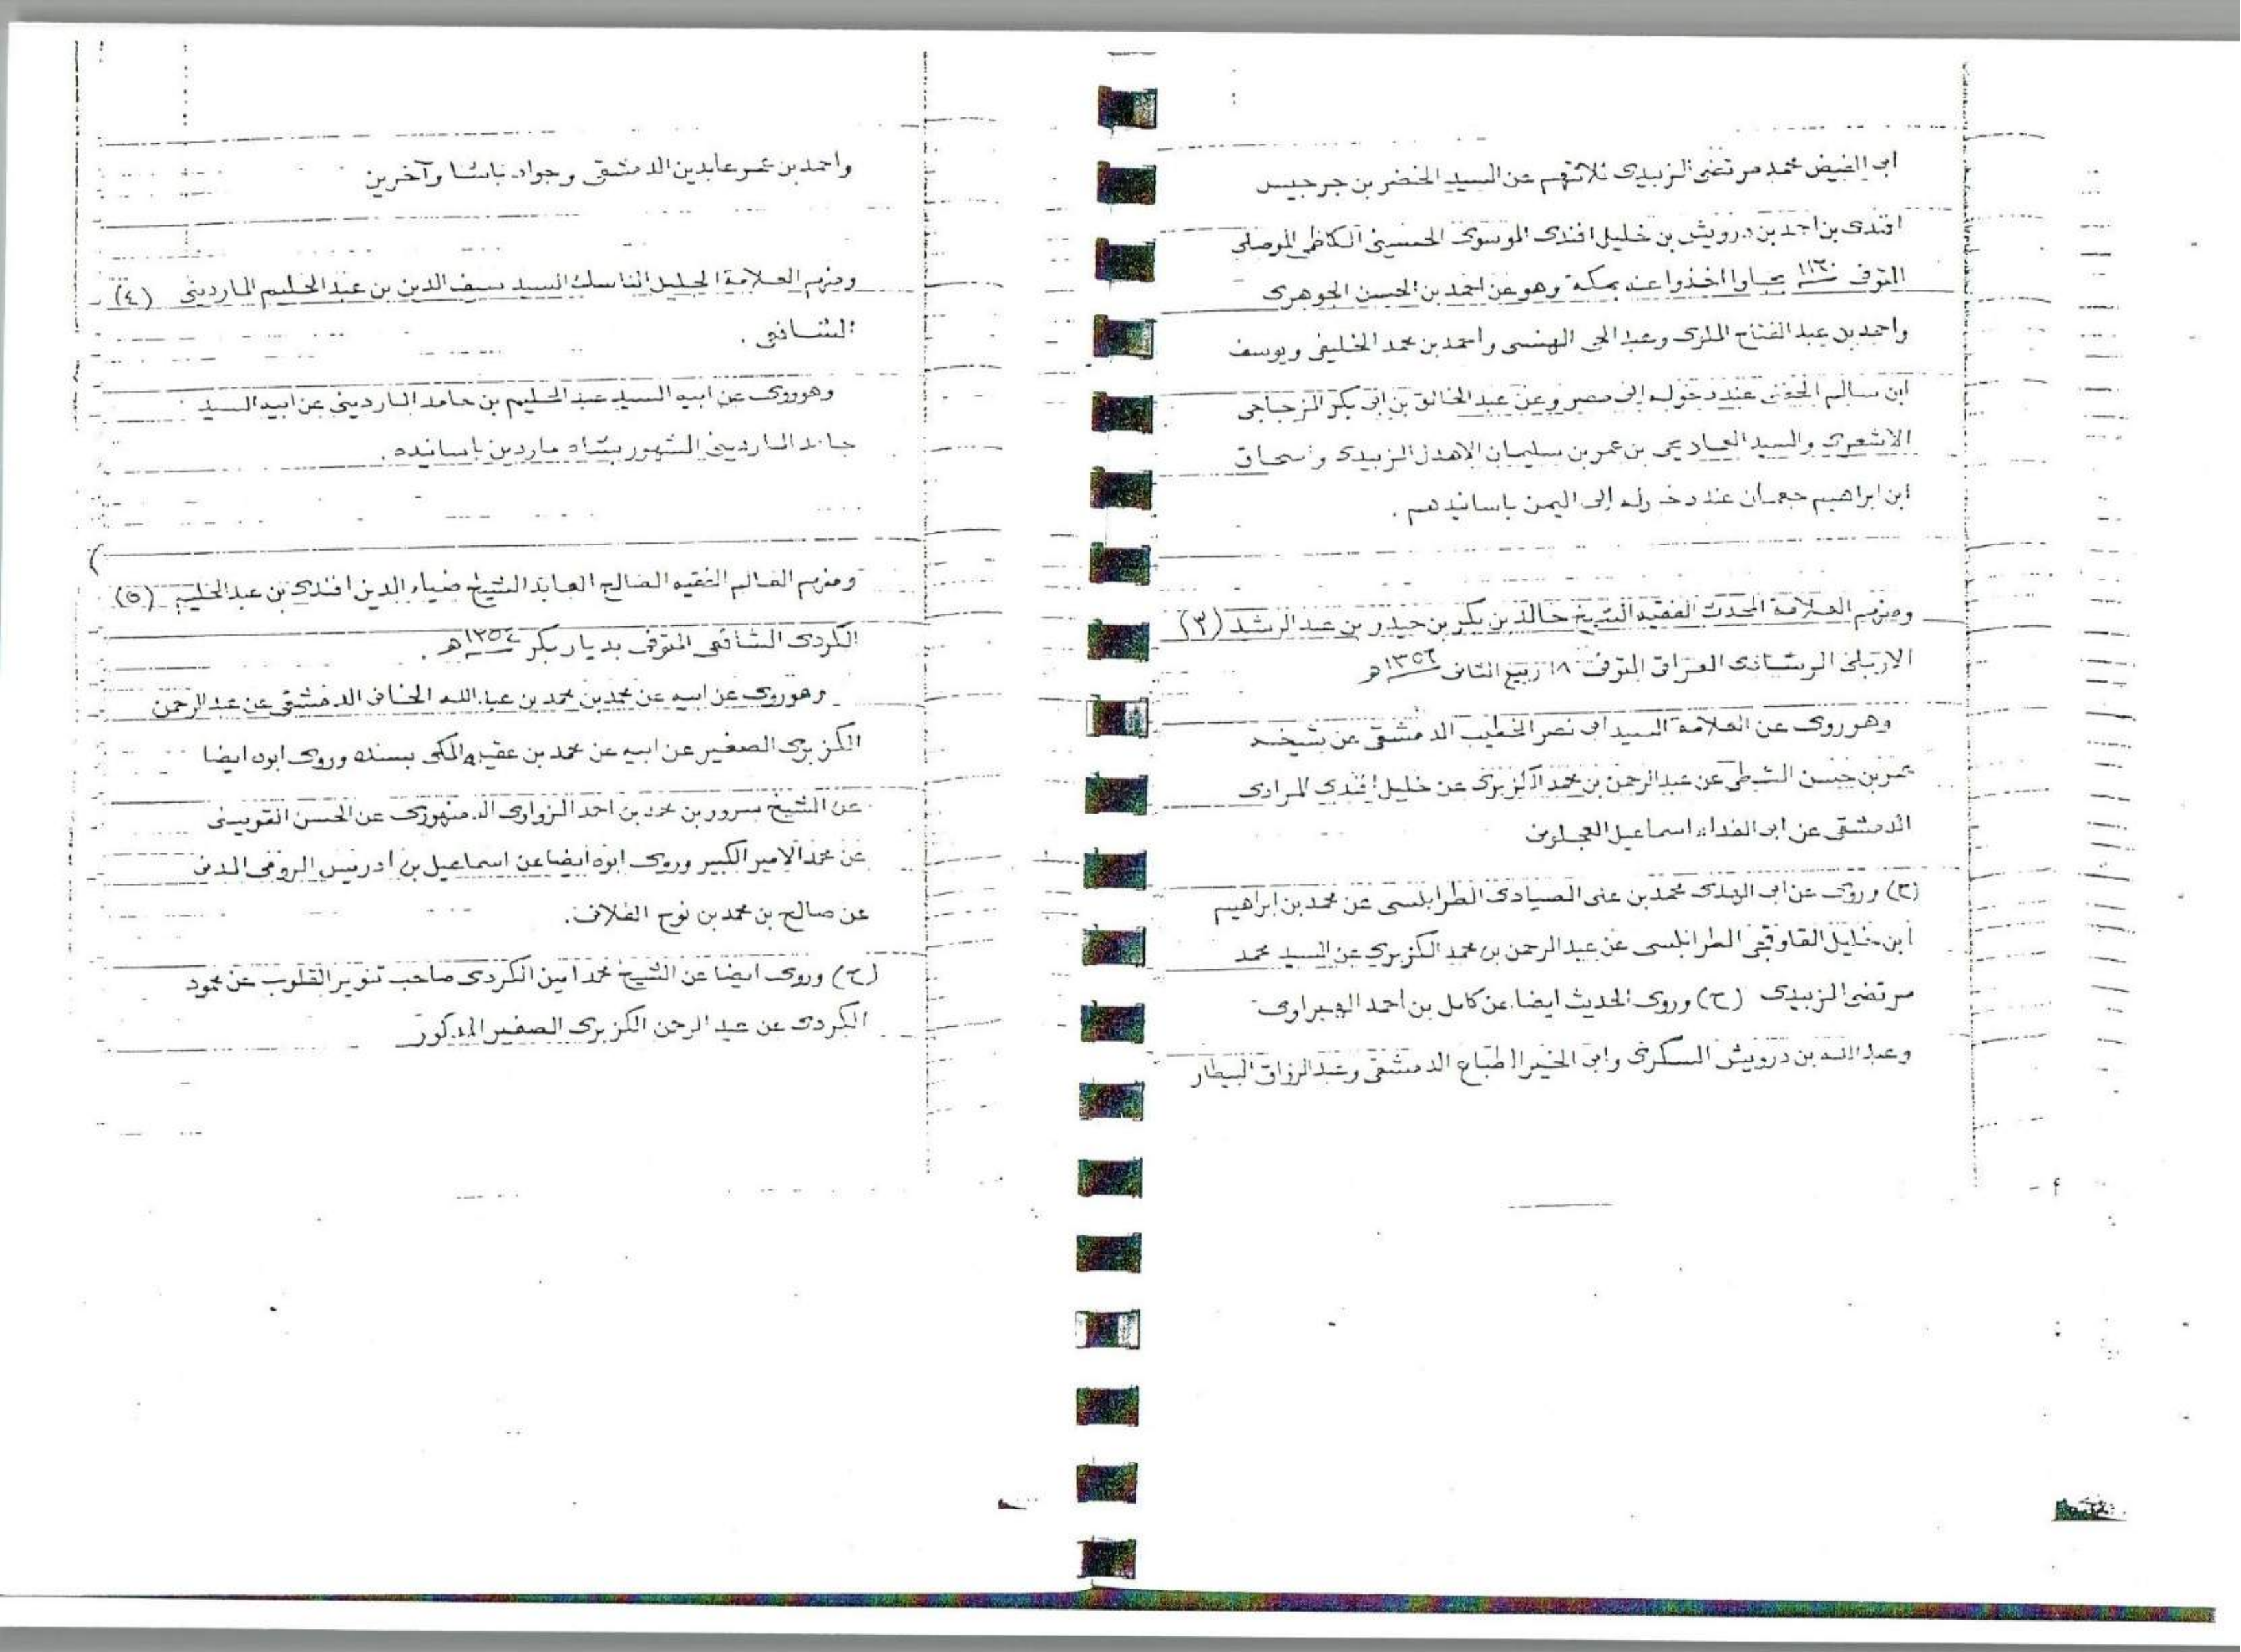 ابى الفيض محمد مرتضى الزبيدى ثلاثتهم عن السيد الخضر بن جرجيس
افندى بن احمد بن درويش بن خليل افندى الموسوى الحسينى الكاظمى الموصلى
المتوفى ١١٢٠ اخذوا عنه بمكة وهو عن احمد بن الحسن الجوهرى
واحمد بن عبد الفتاح الملوى وعبد الحى البهنسى واحمد بن محمد الخليفى ويوسف
ابن سالم الحفنى عند دخوله الى مصر وعن عبد الخالق بن ابى بكر المزجاجى
الاشعرى والسيد العماد يحى بن عمر بن سليمان الاهدل الزبيدى واسحاق
ابن ابراهيم جعمان عند دخوله الى اليمن باسانيدهم .
ومنهم العلامة المحدث الفقيه الشيخ خالد بن بكر بن حيدر بن عبد الرشد (٣)
الاربلى العراقى المتوفى ١٨ ربيع الثانى ١٣٥٦ هـ
وهو روى عن العلامة السيد ابى نصر الخطيب الدمشقى عن شيخه
عمر بن حسن الشطى عن عبد الرحمن بن محمد الكزبرى عن خليل افندى المرادى
الدمشقى عن ابى الفداء اسماعيل العجلونى
(ح) وروى عن ابى الهدى محمد بن على الصيادى الطرابلسى عن محمد بن ابراهيم
ابن خليل القاوقجى الطرابلسى عن عبد الرحمن بن محمد الكزبرى عن السيد محمد
مرتضى الزبيدى (ح) وروى الحديث ايضا عن كامل بن احمد الهبراوى
وعبد الله بن درويش السكرى وابى الخير الطباع الدمشقى وعبد الرزاق البيطار
واحمد بن عمر عابدين الدمشقى وجواد باشا وآخرين
ومنهم العلامة الجليل الناسك السيد سيف الدين بن عبد الحليم الماردينى (٤)
الشافعى .
وهو روى عن ابيه السيد عبد الحليم بن حامد الماردينى عن ابيه السيد
حامد الماردينى المشهور بشاه ماردين باسانيده .
ومنهم العالم الفقيه الصالح العابد الشيخ ضياء الدين افندى بن عبد الحليم (٥)
الكردى الشافعى المتوفى بديار بكر ١٣٥٤ هـ .
وهو روى عن ابيه عن محمد بن محمد بن عبد الله الخانى الدمشقى عن عبد الرحمن
الكزبرى الصغير عن ابيه عن محمد بن عقيلة المكى بسنده وروى ابوه ايضا
عن الشيخ سرور بن محمد بن احمد الزواوى الدمنهورى عن الحسن القويسنى
عن محمد الامير الكبير وروى ابوه ايضا عن اسماعيل بن ادريس الرومى المدنى
عن صالح بن محمد بن نوح الفلانى .
(ح) وروى ايضا عن الشيخ محمد امين الكردى صاحب تنوير القلوب عن محمود
الكردى عن عبد الرحمن الكزبرى الصغير المذكور